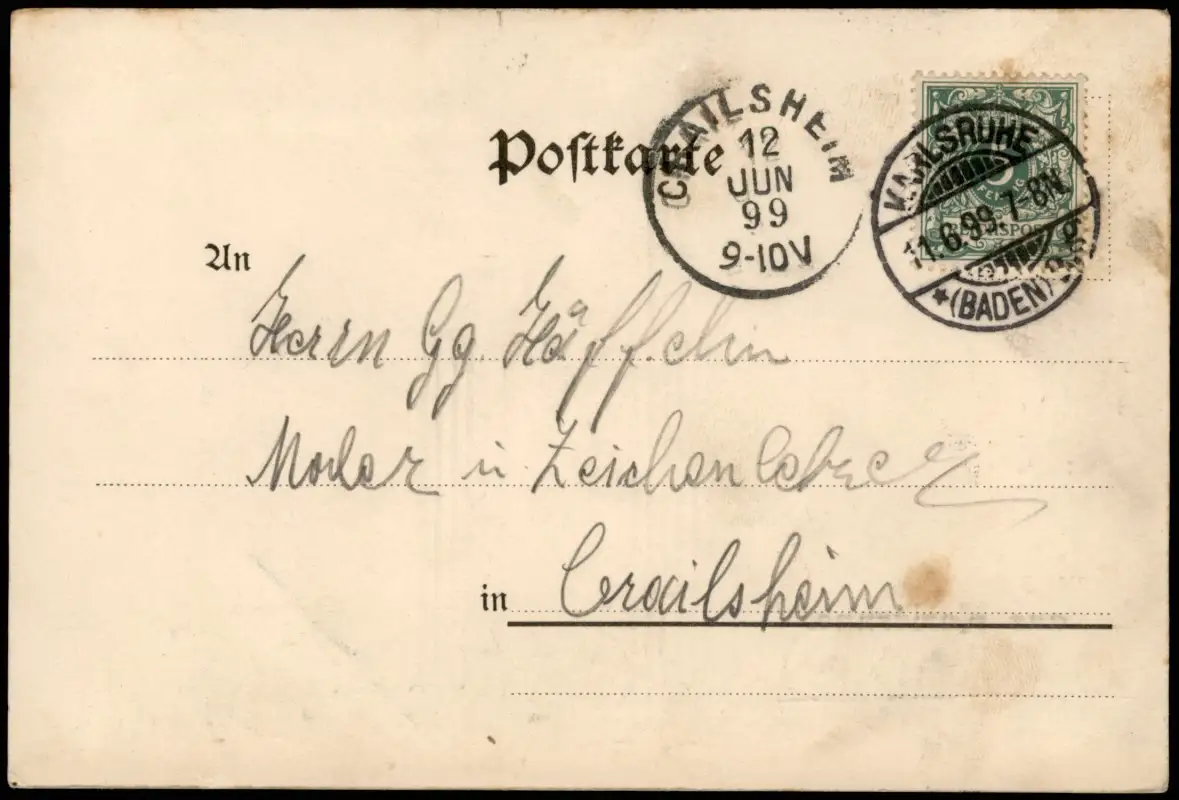 Postkarte
CRAILSHEIM
12
JUN
99
9-10V
KARLSRUHE
11.6.99.7-8N
*(BADEN)
5
PFENNIG
REICHSPOST
An
Herrn Gg. Häffelin
Maler u. Zeichenlehrer
in Crailsheim